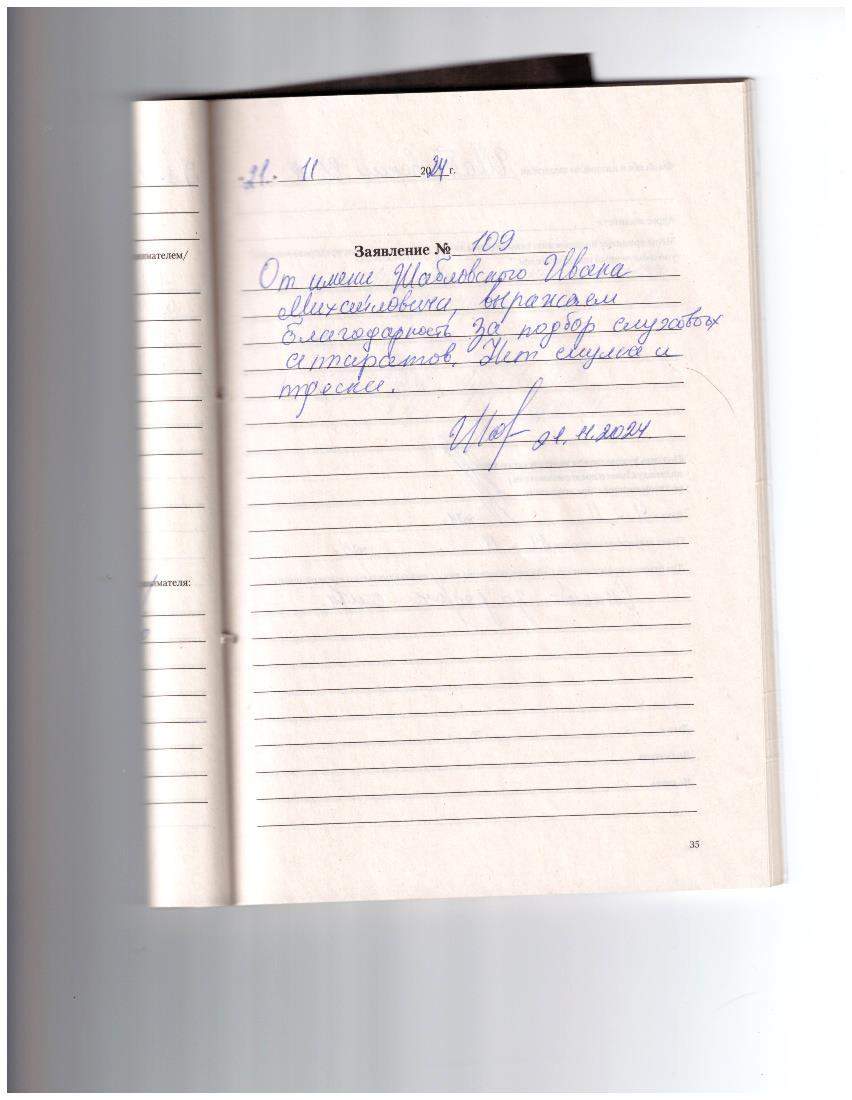 «21» 11 2024 г.
Заявление № 109
От имени Шабловского Ивана
Михайловича, выражаем
благодарность за подбор слуховых
аппаратов. Нет шума и
треска.
21.11.2024
нимателем/
нимателя:
35